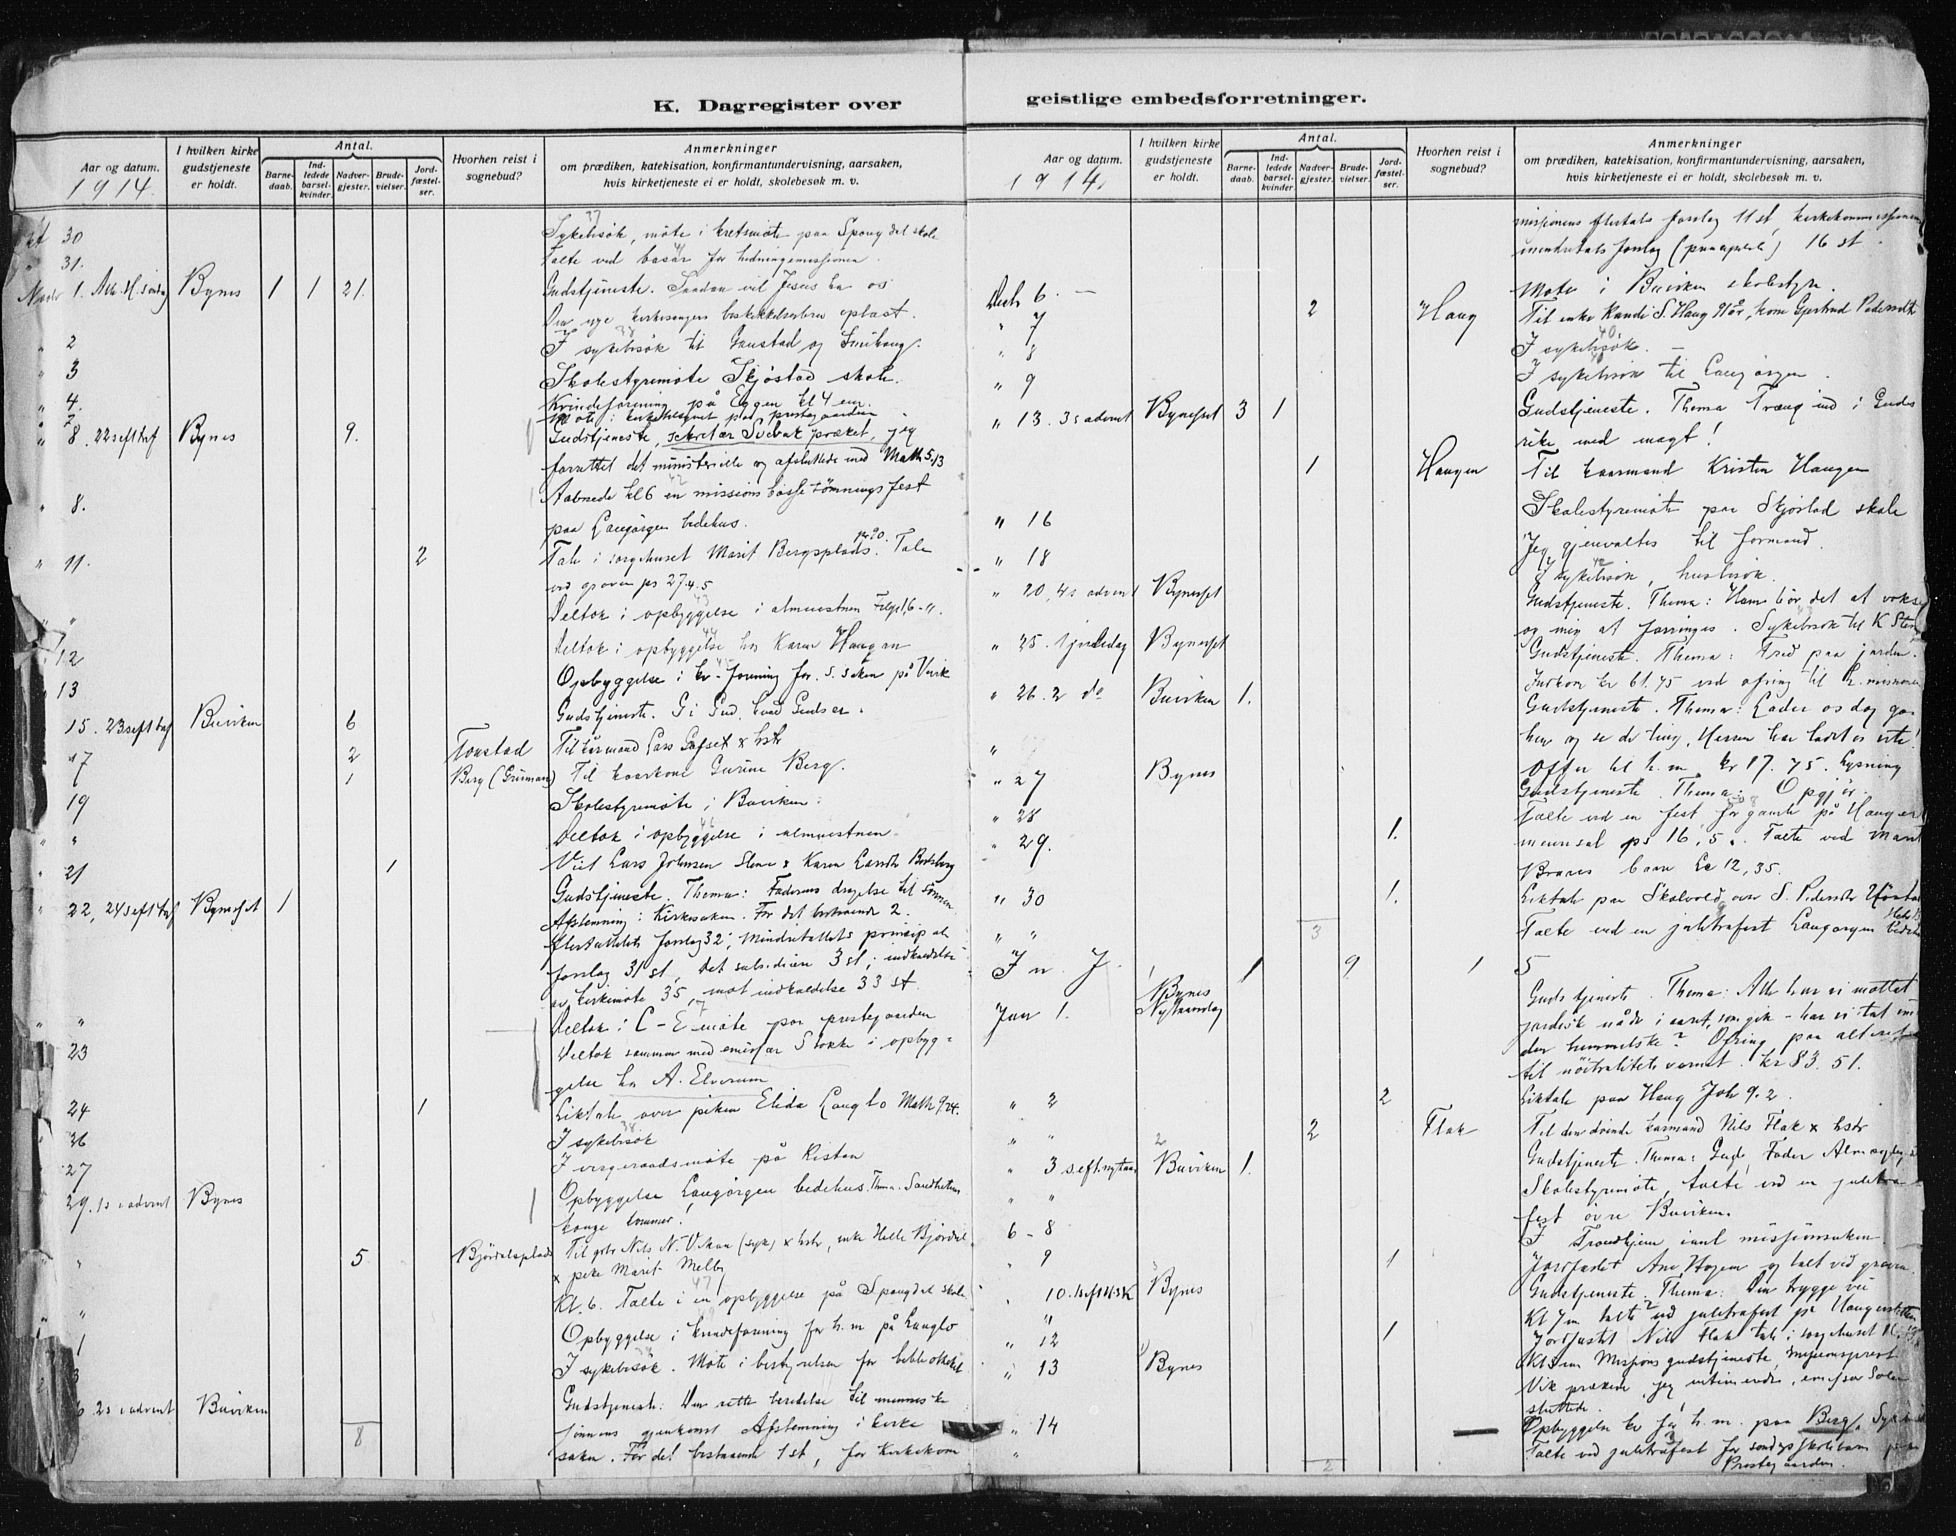 K. Dagregister over geistlige embedsforretninger.
Aar og datum. 1914.
I hvilken kirke gudstjeneste er holdt.
Antal.
Barnedaab.
Indledede barselkvinder.
Nadvergjester.
Brudevielser.
Jordfæstelser.
Hvorhen reist i sognebud?
Anmerkninger
om prædiken, katekisation, konfirmantundervisning, aarsaken,
hvis kirketjeneste ei er holdt, skolebesøk m. v.
30 Sykebesök, möte i kretsmöte paa Spongdal skole
31. Talte ved basar for hedningemissionen.
1. Alle H. söndag Bynes 1 1 21. Gudstjeneste. Saadan vil Jesus ha os
Den nye kirkesangers beskikkelsesbrev oplæst.
" 2 I sykebesök til
" 3 Skolestyremöte Skjöstad skole.
" 4. Kvindeforening på Eggen kl 4 em.
" 7 Möte i paa prestegaarden
" 8. 22 s eft tref Bynes 9. Gudstjeneste, sekretær præket, jeg
forrettet det ministerielle og afsluttede med Math 5.13
" 8. Aabnede kl 6 en missions bösse tömnings fest
paa Langörgen bedehus.
" 11. 2 Tale i sorgehuset Marit Bergsplads. Tale
ved graven ps 27 4.5
" " Deltok i opbyggelse i almuestuen
12 Deltok i opbyggelse hos Karen Haugan
13 Opbyggelse i kv-forening for s. saken på
15. 23 s eft tref Buviken 6 Gudstjeneste. Gi Gud, hvad Guds er.
17 2 Tonstad Til kårmand Lars x hstr
1 Berg Til kaarkone Gurine Berg.
19 Skolestyremöte i Buviken.
" " Deltok i opbyggelse i almuestuen.
" 21 1 Viet Lars Johnsen Stene x Karen
" 22, 24 s eft tref Byneset 1 Gudstjeneste. Thema: Faderens dragelse til sönnen
Afstemning i Kirkesaken. For det bestaaende 2.
Flertallets forslag 32, Mindretallets principale
forslag 31 st, det subsidiære 3 st; indkaldelse
av kirkemöte 35, mot indkaldelse 33 st.
" " Deltok i C-E möte paa prestegaarden
23 Deltok sammen med emissær Stokke i opbyg-
gelse hos A. Elverum
24 1 Liktale over piken Elida Langlo Math 9.24.
26 I sykebesök
27 I vergeraadsmöte på Ristan
29. 1 s i advent Bynes Opbyggelse Langörgen bedehus. Thema: Sandhetens
konge kommer.
" 5 Björdalsplads Til Nils N. (syk) x hstr, enke Helle Björdal
x pike Marit Melby
" Kl. 6. Talte i en opbyggelse på Spongdal skole
1 Opbyggelse i kvindeforening for h.m på Langlo
3 I sykebesök. Möte i bestyrelsen for biblioteket
6. 2 s i advent Buviken Gudstjeneste: Den rette beredelse til menneske
sönnens gjenkomst Afstemning i kirke
8 saken. For det bestaaende 1 st, for Kirkekom
Aar og datum. 1914.
I hvilken kirke gudstjeneste er holdt.
Antal.
Barnedaab.
Indledede barselkvinder.
Nadvergjester.
Brudevielser.
Jordfæstelser.
Hvorhen reist i sognebud?
Anmerkninger
om prædiken, katekisation, konfirmantundervisning, aarsaken,
hvis kirketjeneste ei er holdt, skolebesøk m. v.
misjonens flertals forslag 11 st, kirkekommissjonens
mindretals forslag 16 st.
Decb 6. Möte i Buviken skolestyre.
" 7 2 Haug Til enke S. Haug 91 år, kone Gjertrud Pedersdtr
" 8 I sykebesök.
" 9 I sykebesök til Langörgen
" 13. 3 s advent Byneset 3 1 Gudstjeneste. Thema Træng ind i Guds
rike med magt!
1 Haugen Til kaarmand Kristen Haugen
" 16 Skolestyremöte paa Skjöstad skole
Jeg gjenvaltes til formand.
" 18 I sykebesök, husbesök.
" 20, 4 s advent Byneset Gudstjeneste. Thema: Ham bör det at vokse
og mig at forringes. Sykebesök til K
" 25. 1 juledag Byneset Gudstjeneste. Thema: Fred paa jorden.
Indkom kr 61.75 ved ofring til h. misionen
" 26. 2 do Buviken 1. Gudstjeneste. Thema: Lader os dog gaa
hen og se de ting, Herren har ladet os vite!
" Offer til h. m. kr 17.75. Lysning
" 27 Bynes Gudstjeneste. Thema: Opgjör.
" 28 Talte ved en fest for gamle på Haugen
" 29. 1. ps 16,5. Talte ved Marit
Braaes baare Lc 12,35.
" 30 1. Liktale paa Skolvold over S. Pedersdtr
" " 3 Talte ved en juletræfest Langörgen bedehus
1 9 1 5
Jan 1. Bynes Nytaarsdag Gudstjeneste. Thema: Alle har vi mottat
jordisk nåde i aaret, som gik - har vi tat imot
den himmelske? Ofring paa alteret
til nöitralitets vernet. kr 83.51.
" 2 2 Liktale paa Haug Joh 9.2
" " 2 Flak Til den döende karmand Nils Flak x hstr
" 3 s. eft. nytaar Buviken 1. Gudstjeneste. Thema: Gud, Fader Almægtig
" " Skolestyremöte, talte ved en juletræ-
fest övre Buviken.
6 - 8 I Trondhjem misjonsuken
" 9 1 Jordfæstet Ane Hagen og talt ved graven
" 10. Bynes Gudstjeneste. Thema: Den trygge vei
" " Kl 7 em talte ved juletræfest på
" 12 1 Jordfæstet Nils Flak tale i sorgehuset
" 13 Bynes Kl 5 em Missjons gudstjeneste, missionsprest
Vik prækede, jeg
sluttede.
" 14 Opbyggelse kv for h. m. paa Berg.
" 2 Talte ved juletræfest for söndagsskolebarn
Prestegaarden.